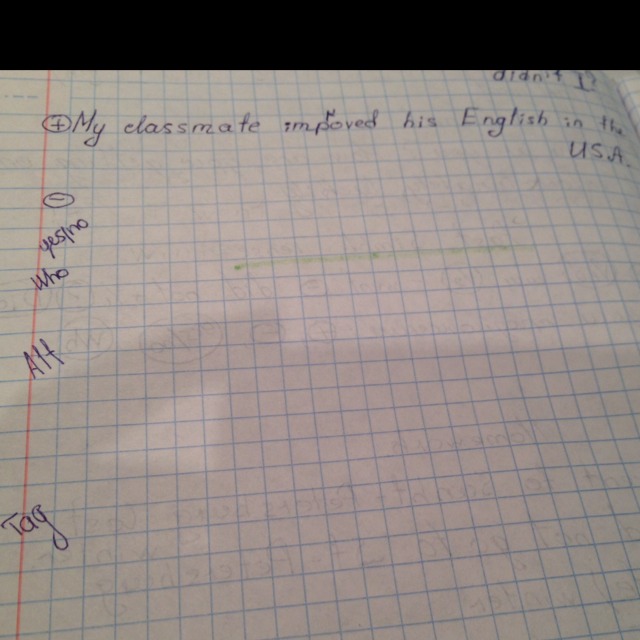 didn't I?
⊕ My classmate impoved his English in the
USA.
⊖
yes/no
who
Alt
Tag